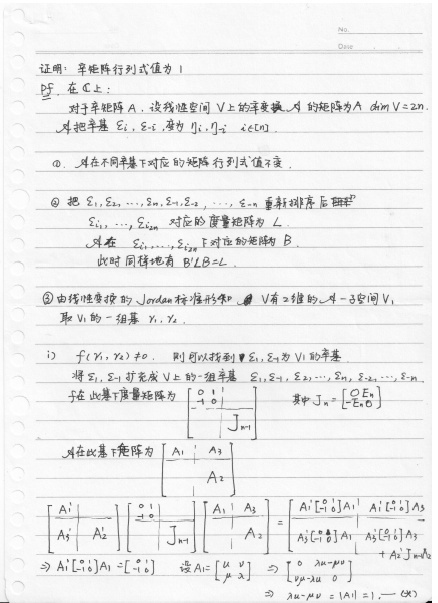 No.
Date
证明: 辛矩阵行列式值为 1
Pf. 在 ℂ 上:
对于辛矩阵 A. 设线性空间 V 上的辛变换 𝒜 的矩阵为 A dim V = 2n.
𝒜 把辛基 ε_i, ε_{-i} 变为 η_i, η_{-i} i∈[n]
①. 𝒜 在不同辛基下对应的矩阵行列式值不变.
② 把 ε_1, ε_2, …, ε_n, ε_{-1}, ε_{-2}, …, ε_{-n} 重新排序后
ε_{i_1}, …, ε_{i_{2n}} 对应的度量矩阵为 L.
𝒜 在 ε_{i_1}, …, ε_{i_{2n}} 下对应的矩阵为 B.
此时同样地有 B'LB = L.
③ 由线性变换的 Jordan 标准形知 V 有 2 维的 𝒜-子空间 V_1
取 V_1 的一组基 γ_1, γ_2.
i) f(γ_1, γ_2) ≠ 0. 则可以找到 ε_1, ε_{-1} 为 V_1 的辛基.
将 ε_1, ε_{-1} 扩充成 V 上的一组辛基 ε_1, ε_{-1}, ε_2, …, ε_n, ε_{-2}, …, ε_{-n}.
f 在此基下度量矩阵为 [0 1 -1 0 | J_{n-1}] 其中 J_n = [0 E_n -E_n 0]
𝒜 在此基下矩阵为 [A_1 A_3 A_2]
[A_1' A_3' A_2'] [0 1 -1 0 J_{n-1}] [A_1 A_3 A_2] = [A_1'[0 1 -1 0]A_1 A_1'[0 1 -1 0]A_3 A_3'[0 1 -1 0]A_1 A_3'[0 1 -1 0]A_3 + A_2'J_{n-1}A_2]
⇒ A_1'[0 1 -1 0]A_1 = [0 1 -1 0] 设 A_1 = [u v μ λ] ⇒ [0 λu-μv vμ-λu 0]
⇒ λu-μv = |A_1| = 1. — (*)